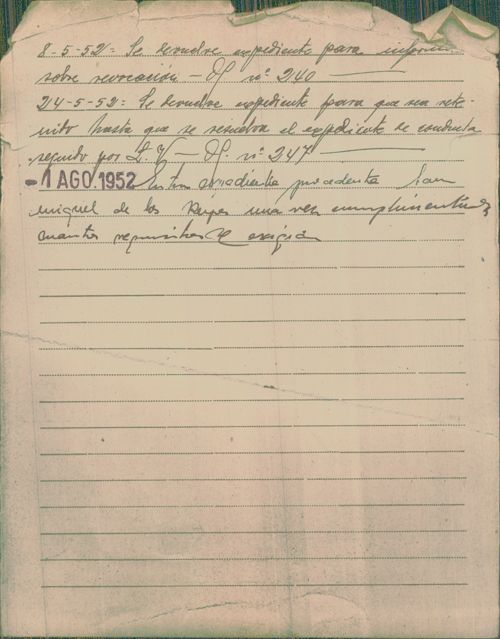 8-5-52= Se devuelve expediente para informe
sobre revocación — Of. nº 240
24-5-52= Se devuelve expediente para que sea rete-
nido hasta que se resuelva el expediente de conducta
seguido por Of. nº 247
-1 AGO. 1952 Entra expediente procedente San
miguel de los Reyes una vez cumplimentado
cuantos requisitos se exigían